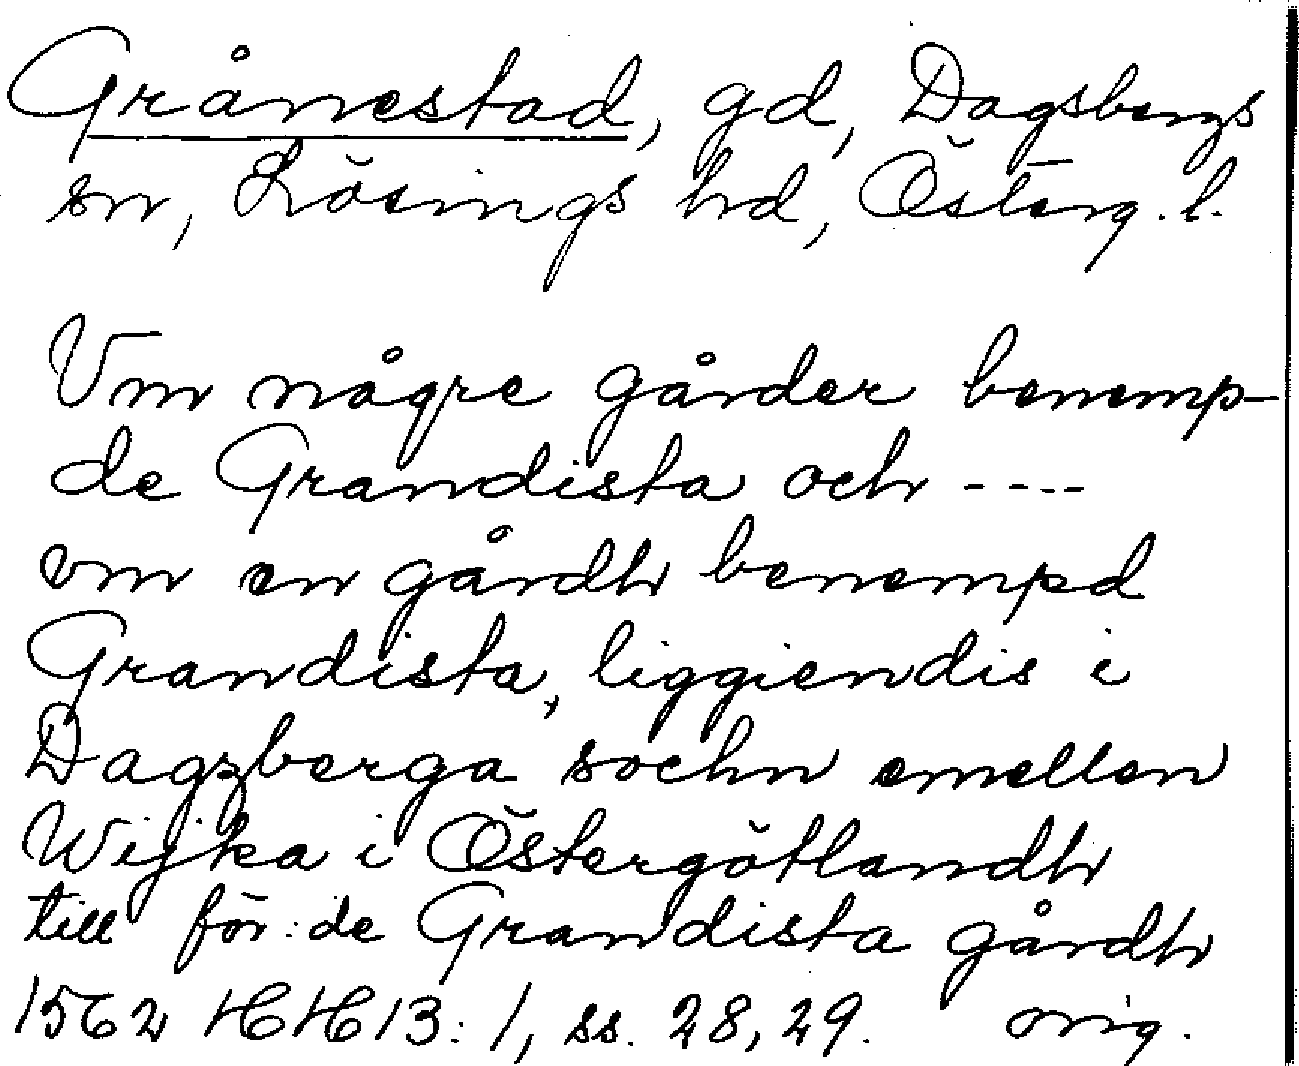 Grånestad, gd, Dagsbergs
sn, Lösings hd, Österg. l.
Vm någre gårder benemp-
de Grandista och ----
vm en gårdh benempd
Grandista, liggiendis i
Dagzberga sochn emellen
Wijka i Östergötlandh
till för:de Grandista gårdh
1562 HH 13:1, ss. 28, 29. orig.